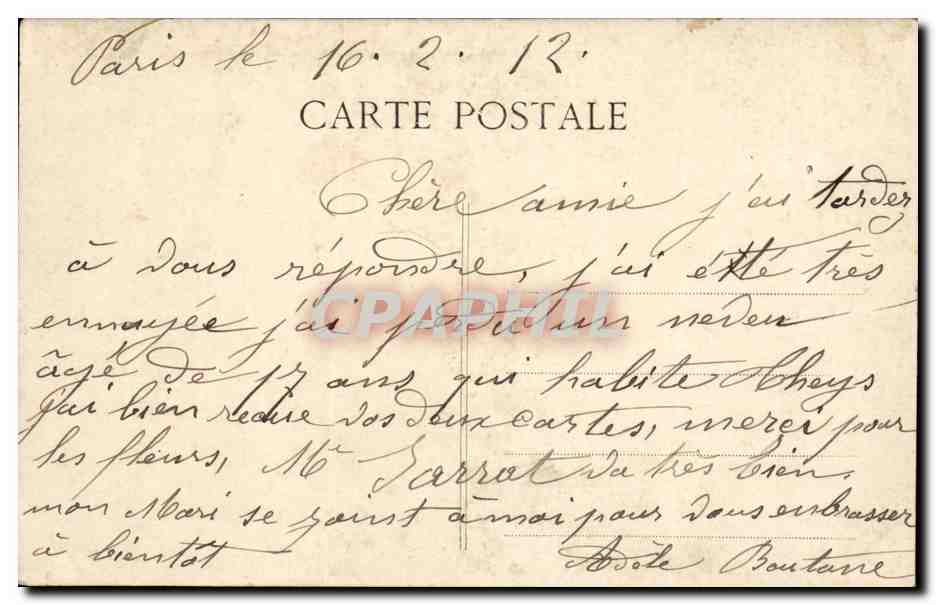 Paris le 16. 2. 12.
CARTE POSTALE
Chère amie j'ai tarder
à vous répondre, j'ai étté très
ennuyée j'ai perdu un neveu
CPAPHIL
âgé de 17 ans qui habite Cheys
j'ai bien reçue vos deux cartes, merçi pour
les fleurs, Mr Jarrot va très bien
mon Mari se joint à moi pour vous enbrasser
à bientôt Adèle